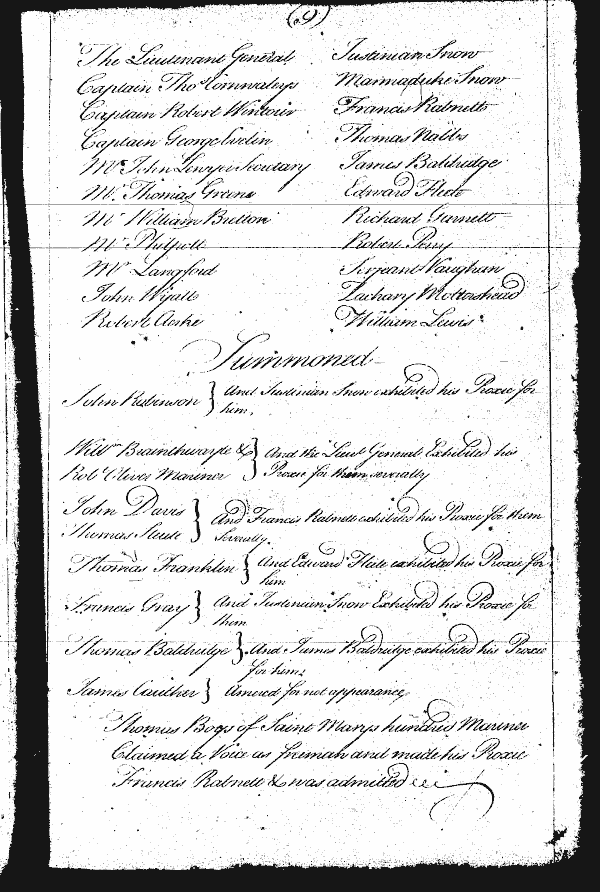 (6)
The Lieutenant General
Captain Thos Cornwaleys
Captain Robert Wintour
Captain George Evelin
Mr John Lewger Secretary
Mr Thomas Greene
Mr William Britton
Mr Philpott
Mr Langford
John Wyatt
Robert Clerke
Justinian Snow
Marmaduke Snow
Francis Rabnett
Thomas Nabbs
James Baldridge
Edward Flete
Richard Garnett
Robert Percy
Serjeant Vaughan
Zachary Mottershead
William Lewis
Summoned
John Robinson } And Justinian Snow exhibited his Proxie for
him.
Willm Brainthwayte & } And the Lieut General Exhibited his
Robt Cliver Mariner } Proxie for them severally
John Davis } And Francis Rabnett exhibited his Proxie for them
Thomas Stente } Severally.
Thomas Franklin } And Edward Flete exhibited his Proxie for
him
Francis Gray } And Justinian Snow Exhibited his Proxie for
them
Thomas Baldridge } And James Baldridge exhibited his Proxie
for him;
James Cauther } Amerced for not appearance,
Thomas Boys of Saint Marys hundred Mariner
Claimed a Voice as freeman and made his Proxie
Francis Rabnett & was admitted